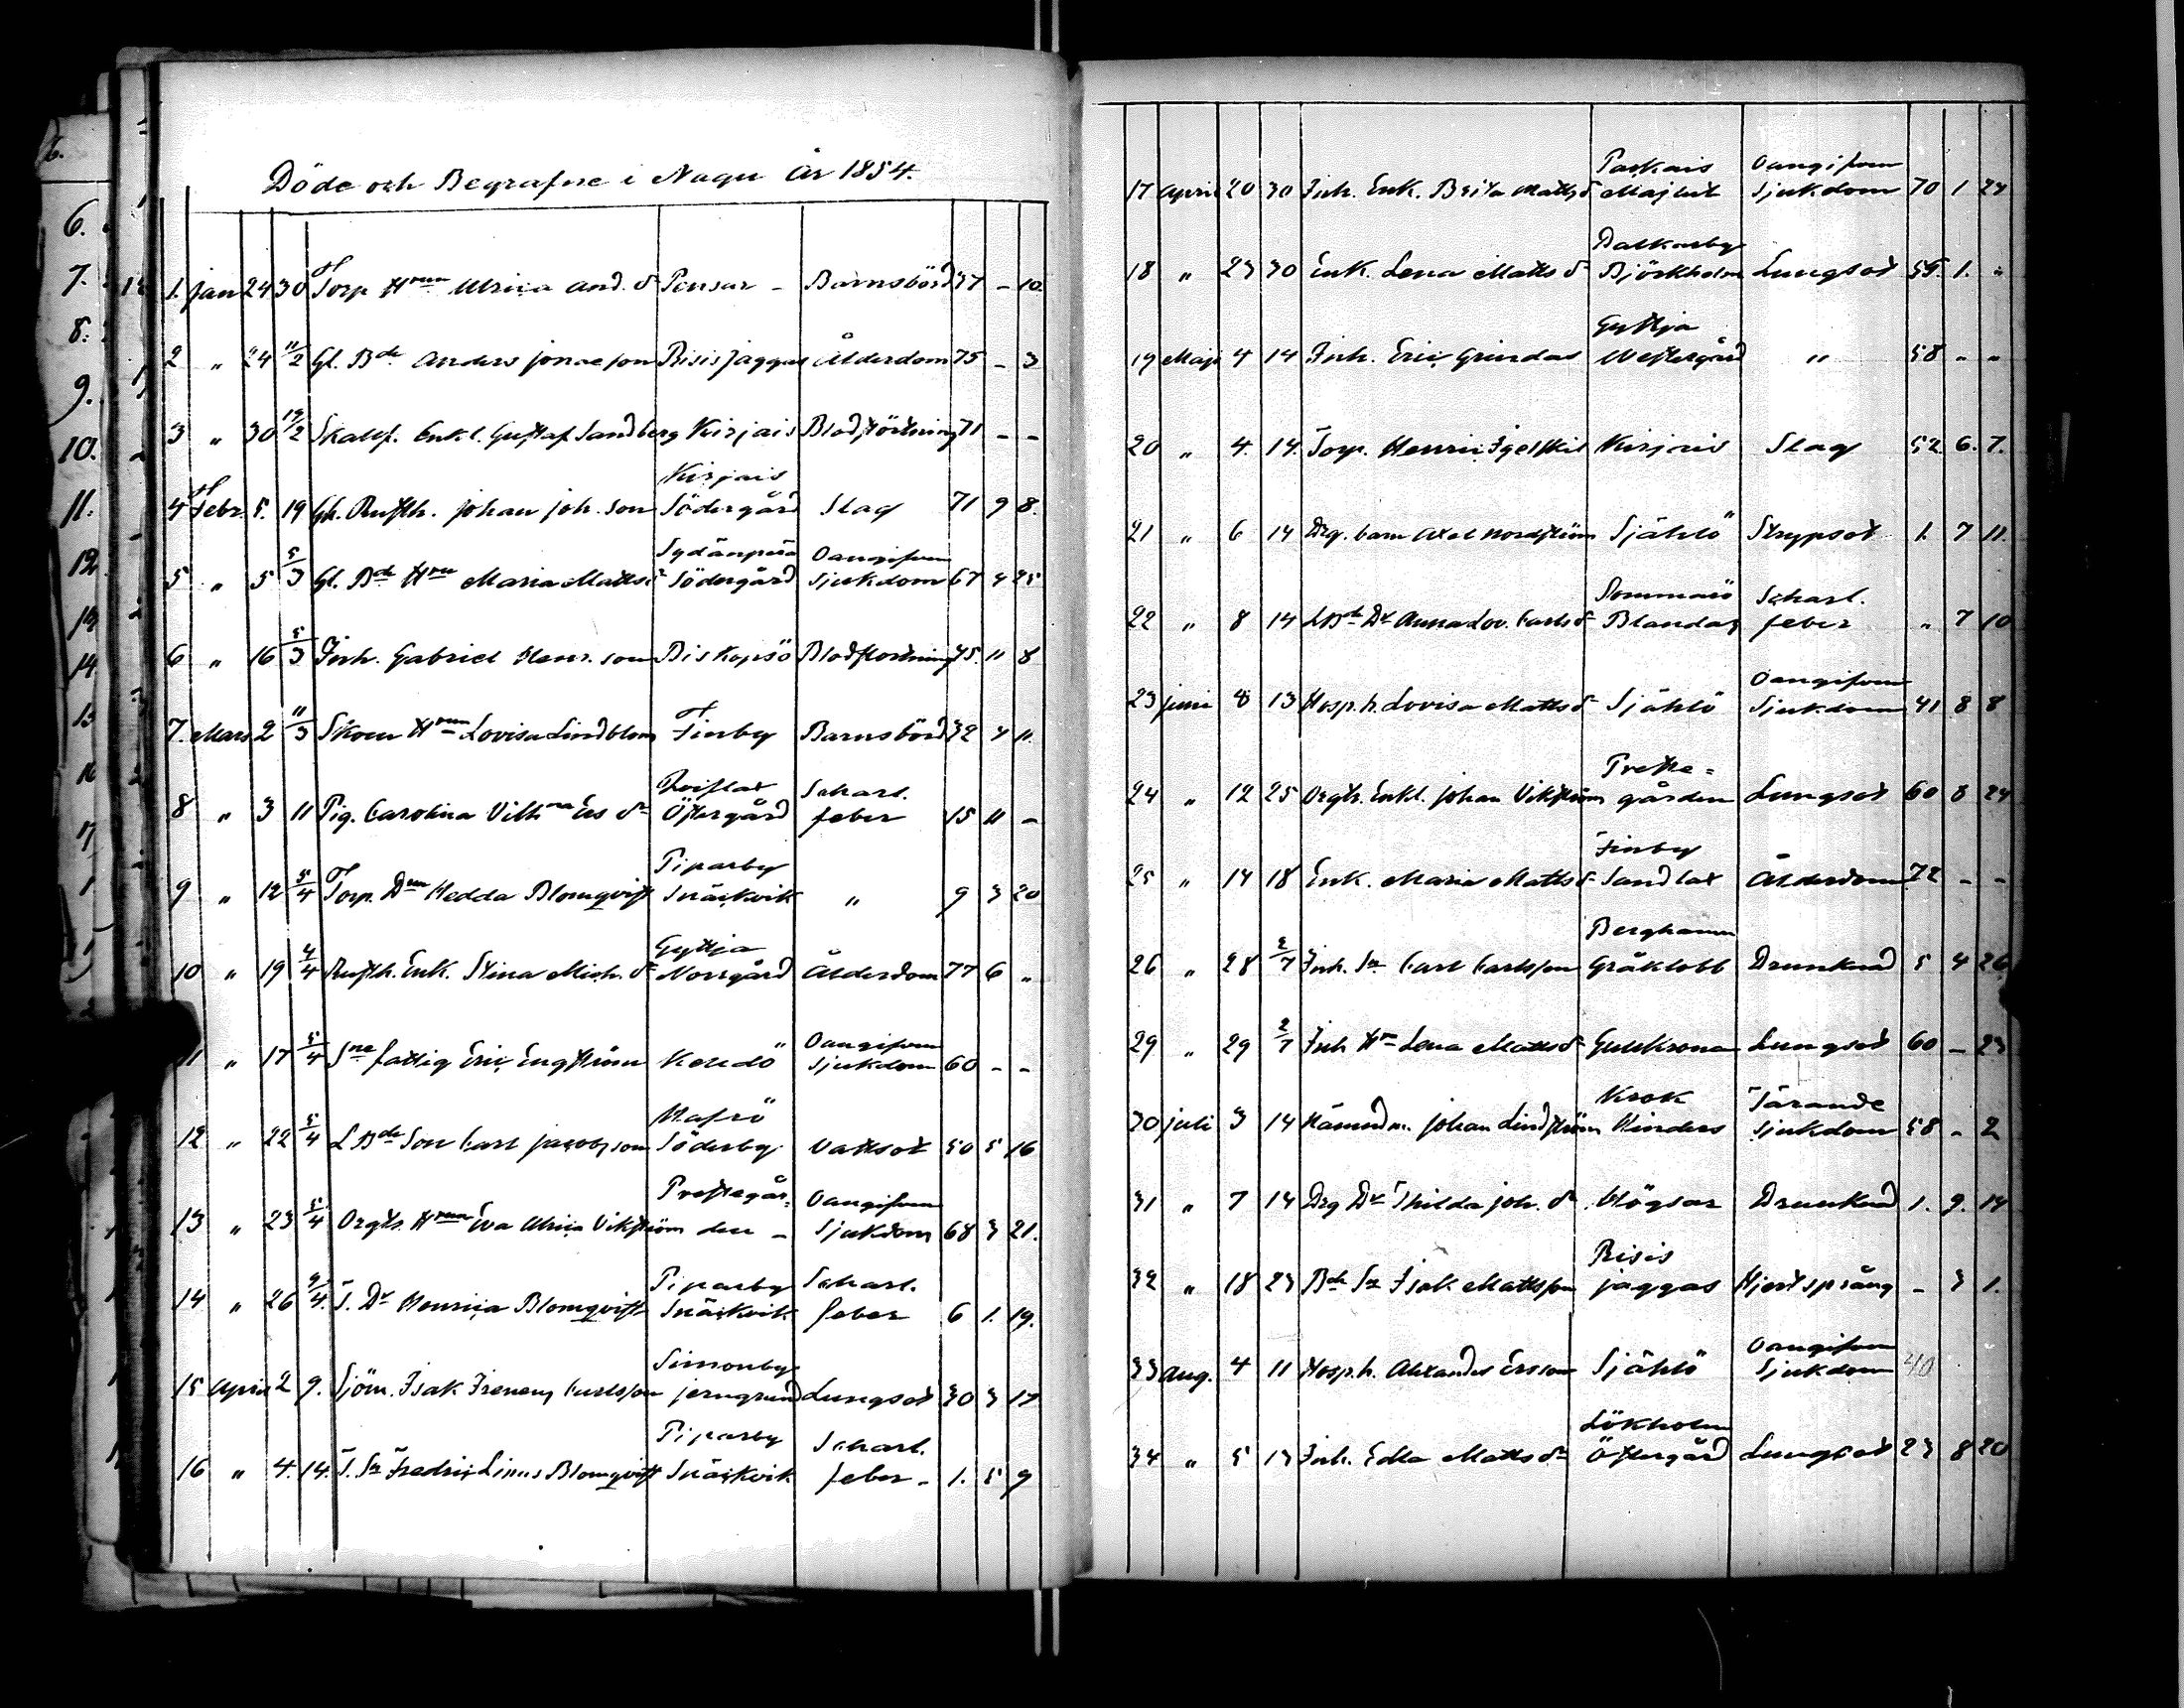 Döde och Begrafne i Nagu År 1854.
1. Jan 24 30 Torp. Hru Ulrica And. dr Pensar - Barnsbörd 37 - 10.
2 " 24 11/2 Gl. Bde Anders Jonasson Risis Jaggas Ålderdom 75 - 3
3 " 30 19/2 Enkl. Gustaf Sandberg Kirjais Blodstörtning 71 - -
Kirjais
4 Febr. 5. 19 Gl. Rusth. Johan Joh. son Södergård Slag 71 9 8.
Sydänperä Oangifven
5 " 5 5/3 Gl. Bde Hru Maria Matts dr Södergård Sjukdom 67 4 25
6 " 16 5/3 Inh. Gabriel Henr. son Biskopsö Blodstortning 75. 11 8
7. Mars 2 11/3 Hru Lovisa Lindblom Finby Barnsbörd 32 4 11.
Scharl.
8 " 3 11 Pig. Carolina Vilhna Ers dr Östergård feber 15 11 -
Piparby
9 " 12 5/4 Torp. Dtr Hedda Blomqvist Snäckvik " 9 3 20
Gyttja
10 " 19 4/4 Rusth. Enk. Stina Mich. dr Norrgård Ålderdom 77 6 "
Oangifven
11 " 17 5/4 Sne fattig Eric Engström Sjukdom 60 - -
12 " 22 5/4 L Bde Son Carl Jacobsson Söderby Vattsot 50 5 16
Prestegår- Oangifven
13 " 23 5/4 Orgts. Hru Eva Ulrica Vikström den - Sjukdom 68 3 21.
Piparby Scharl.
14 " 26 9/4. T. Dr Henrica Blomqvist Snäckvik feber 6 1. 19.
Simonby
15 April 2 9. Sjöm. Isak Carlsson jerngrund Lungsot 30 3 17
Piparby Scharl.
16 " 4. 14. T. Sn Fredric Linus Blomqvist Snäckvik feber - 1. 5 9
Oangifven
17 April 20 30 Inh. Enk. Brita Matts dr Sjukdom 70 1 27
Dalkarby
18 " 23 30 Enk. Lena Matts dr Björkholm Lungsot 55. 1. "
Gyttja
19 Maji 4 14 Inh. Eric Grindas Westergård " 58 - -
20 " 4. 14. Torp. Henric Kirjais Slag 52. 6. 7.
21 " 6 14 Drg. barn Axel Nordström Själö Strypsot 1. 7 11.
Sommarö Scharl.
22 " 8 14 L Bde Dr Anna Lov. Carls dr Blandas feber " 7 10
Oangifven
23 Juni 8 13 Hosp. h. Lovisa Matts dr Själö Sjukdom 41 8 8
Preste-
24 " 12 25 Orgts. Enkl. Johan Vikström gården Lungsot 60 8 24
Finby
25 " 14 18 Enk. Maria Matts dr Sandlax Ålderdom 72 - -
Berghamn
26 " 28 2/7 Inh. Sn Carl Carlsson Gråklobb Drunknad 5 4 26
29 " 29 2/7 Inh Hru Lena Matts dr Gullkrona Lungsot 60 - 23
Krok Tärande
30 Juli 3 14 Johan Lindström Hinders Sjukdom 58 - 2
31 " 7 14 Drg Dr Thilda Joh. dr Högsar Drunknad 1. 9. 14
Risis
32 " 18 23 Bde Sn Isak Mattsson Jaggas Hjertsprång - 3 1.
Oangifven
33 Aug. 4 11 Hosp. h. Alexander Ersson Själö Sjukdom 40
Lökholm
34 " 5 13 Inh. Edla Matts dr Östergård Lungsot 23 8 20
6.
6.
7.
8.
9.
10.
11.
12